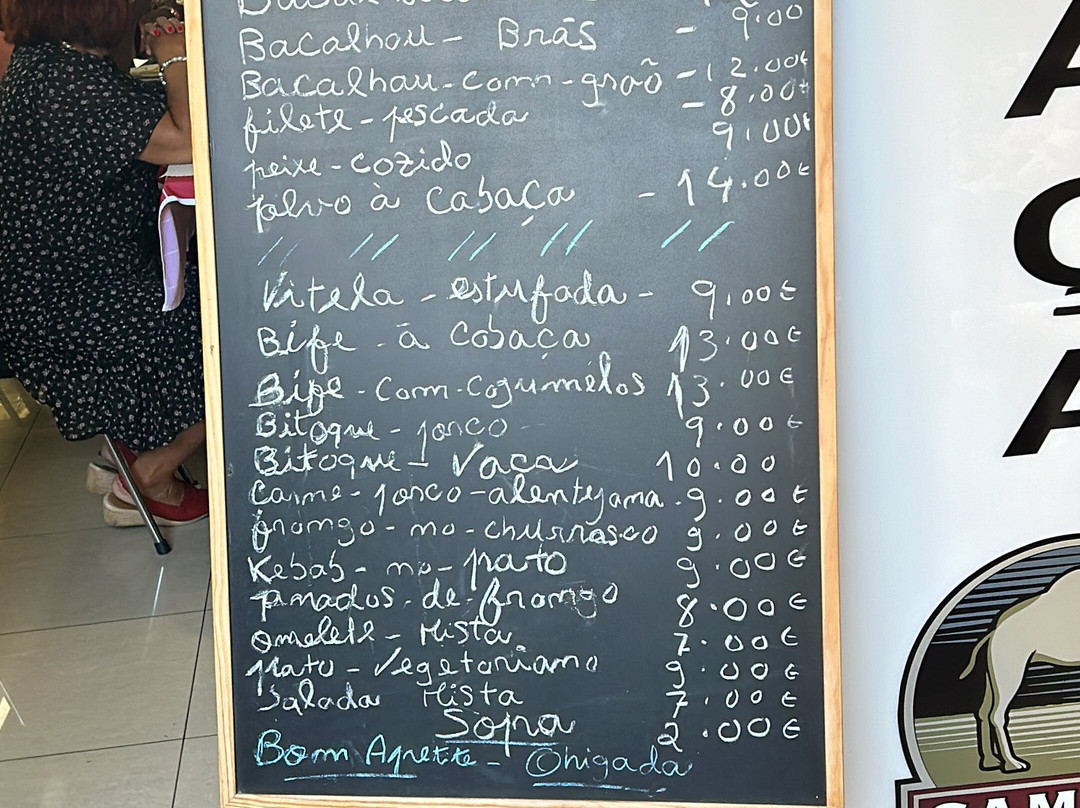 Bacalhau - Brãs - 9.00
Bacalhau - com - graõ - 12.00€
filete - pescada - 8.00€
peixe - cozido 9.00€
polvo à Cabaça - 14.00€
// // // // //
Vitela - estufada - 9,00€
Bife - à Cabaça 13.00€
Bife - com - cogumélos 13.00€
Bitoque - porco - 9.00€
Bitoque - Vaca 10.00
Carne - porco - alentejana - 9.00€
frango - no - churrasco 9.00€
Kebab - no - prato 9.00€
panados - de frango 8.00€
omelete - Mista 7.00€
prato - Vegetariano 9.00€
Salada Mista 7.00€
Sopa 2.00€
Bom Apetite - Obrigada
A
Ç
A